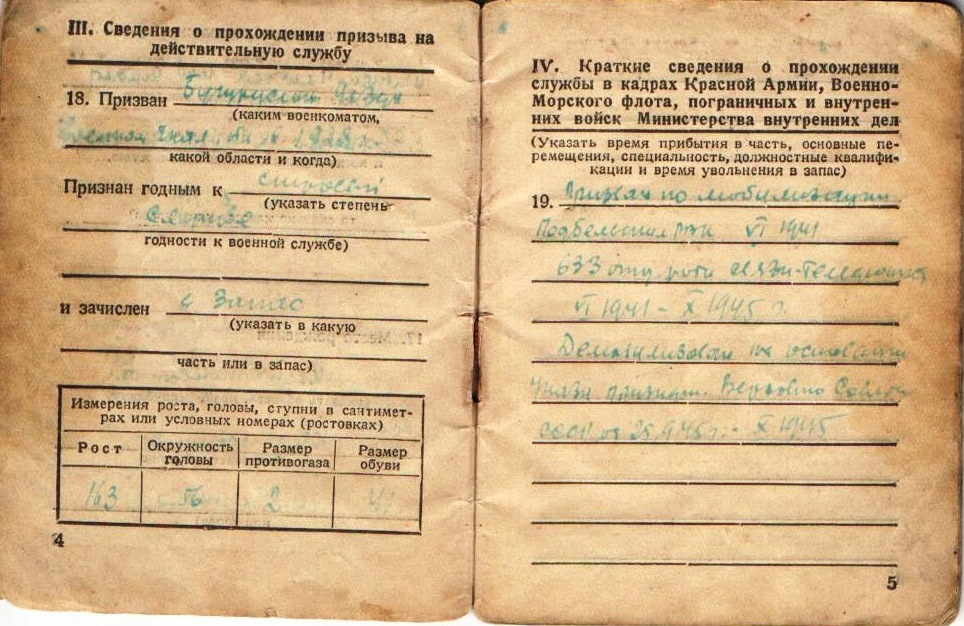 III. Сведения о прохождении призыва на
действительную службу
18. Призван
(каким военкоматом,
какой области и когда)
Признан годным к строевой
(указать степень
службе
годности к военной службе)
и зачислен в Запас
(указать в какую
часть или в запас)
Измерения роста, головы, ступни в сантимет-
рах или условных номерах (ростовках)
Рост Окружность головы Размер противогаза Размер обуви
163 56 2 41
4
IV. Краткие сведения о прохождении
службы в кадрах Красной Армии, Военно-
Морского флота, пограничных и внутрен-
них войск Министерства внутренних дел
(Указать время прибытия в часть, основные пе-
ремещения, специальность, должностные квалифи-
кации и время увольнения в запас)
19. Призван по мобилизации
Подбельским РВК VI 1941
633 роты связи-телефонист
VI 1941 – X 1945 г.
Демобилизован на основании
Указа Верховно Совета
СССР от 25.9.45 г. - X 1945
5